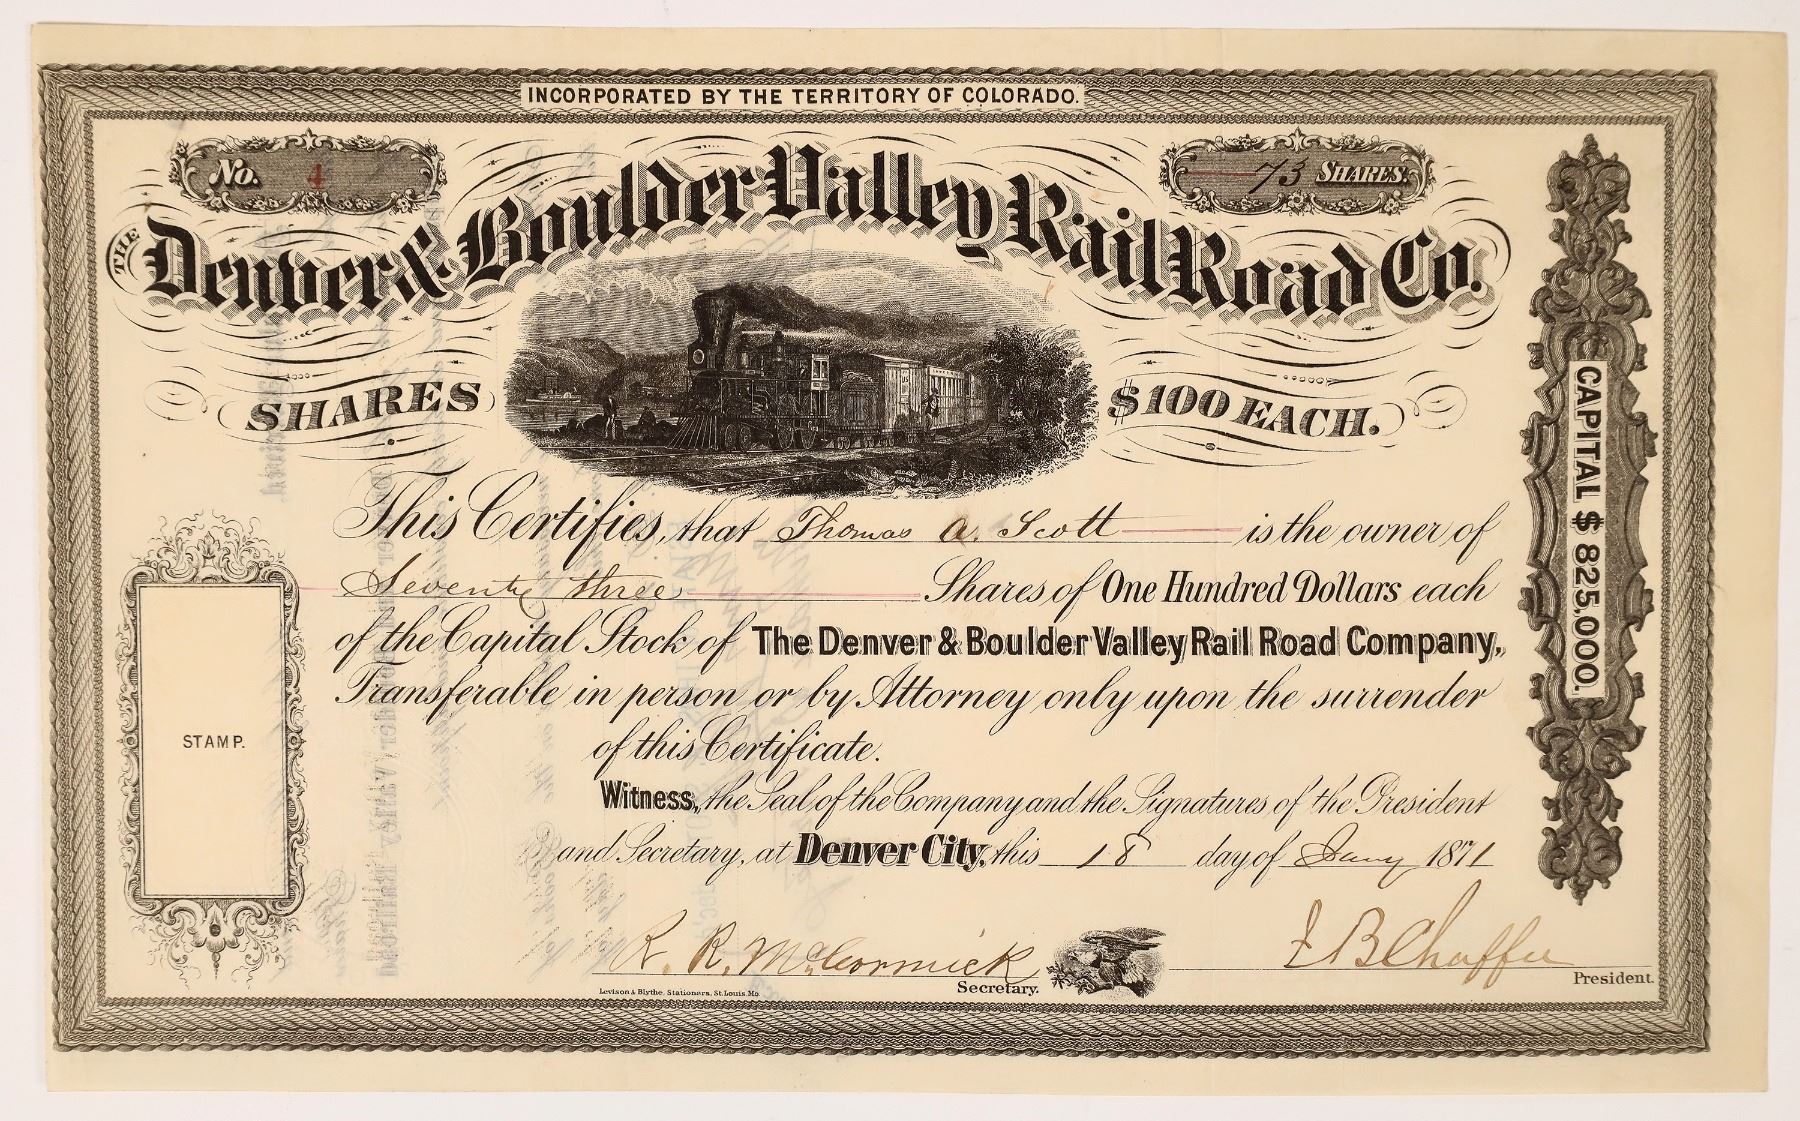 INCORPORATED BY THE TERRITORY OF COLORADO.
No. 4
73 SHARES.
THE Denver & Boulder Valley Rail Road Co.
SHARES $100 EACH.
CAPITAL $825,000.
This Certifies, that Thomas A. Scott is the owner of
Seventy three Shares of One Hundred Dollars each
of the Capital Stock of The Denver & Boulder Valley Rail Road Company,
Transferable in person or by Attorney only upon the surrender
of this Certificate.
STAMP.
Witness, the Seal of the Company and the Signatures of the President
and Secretary, at Denver City, this 18 day of Jany 1871
R. R. McCormick
J B Chaffee
Secretary.
President.
Levison & Blythe, Stationers, St. Louis Mo